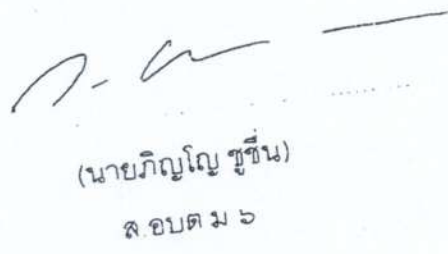 (นายภิญโญ ชูชื่น)
ส.อบต ม ๖